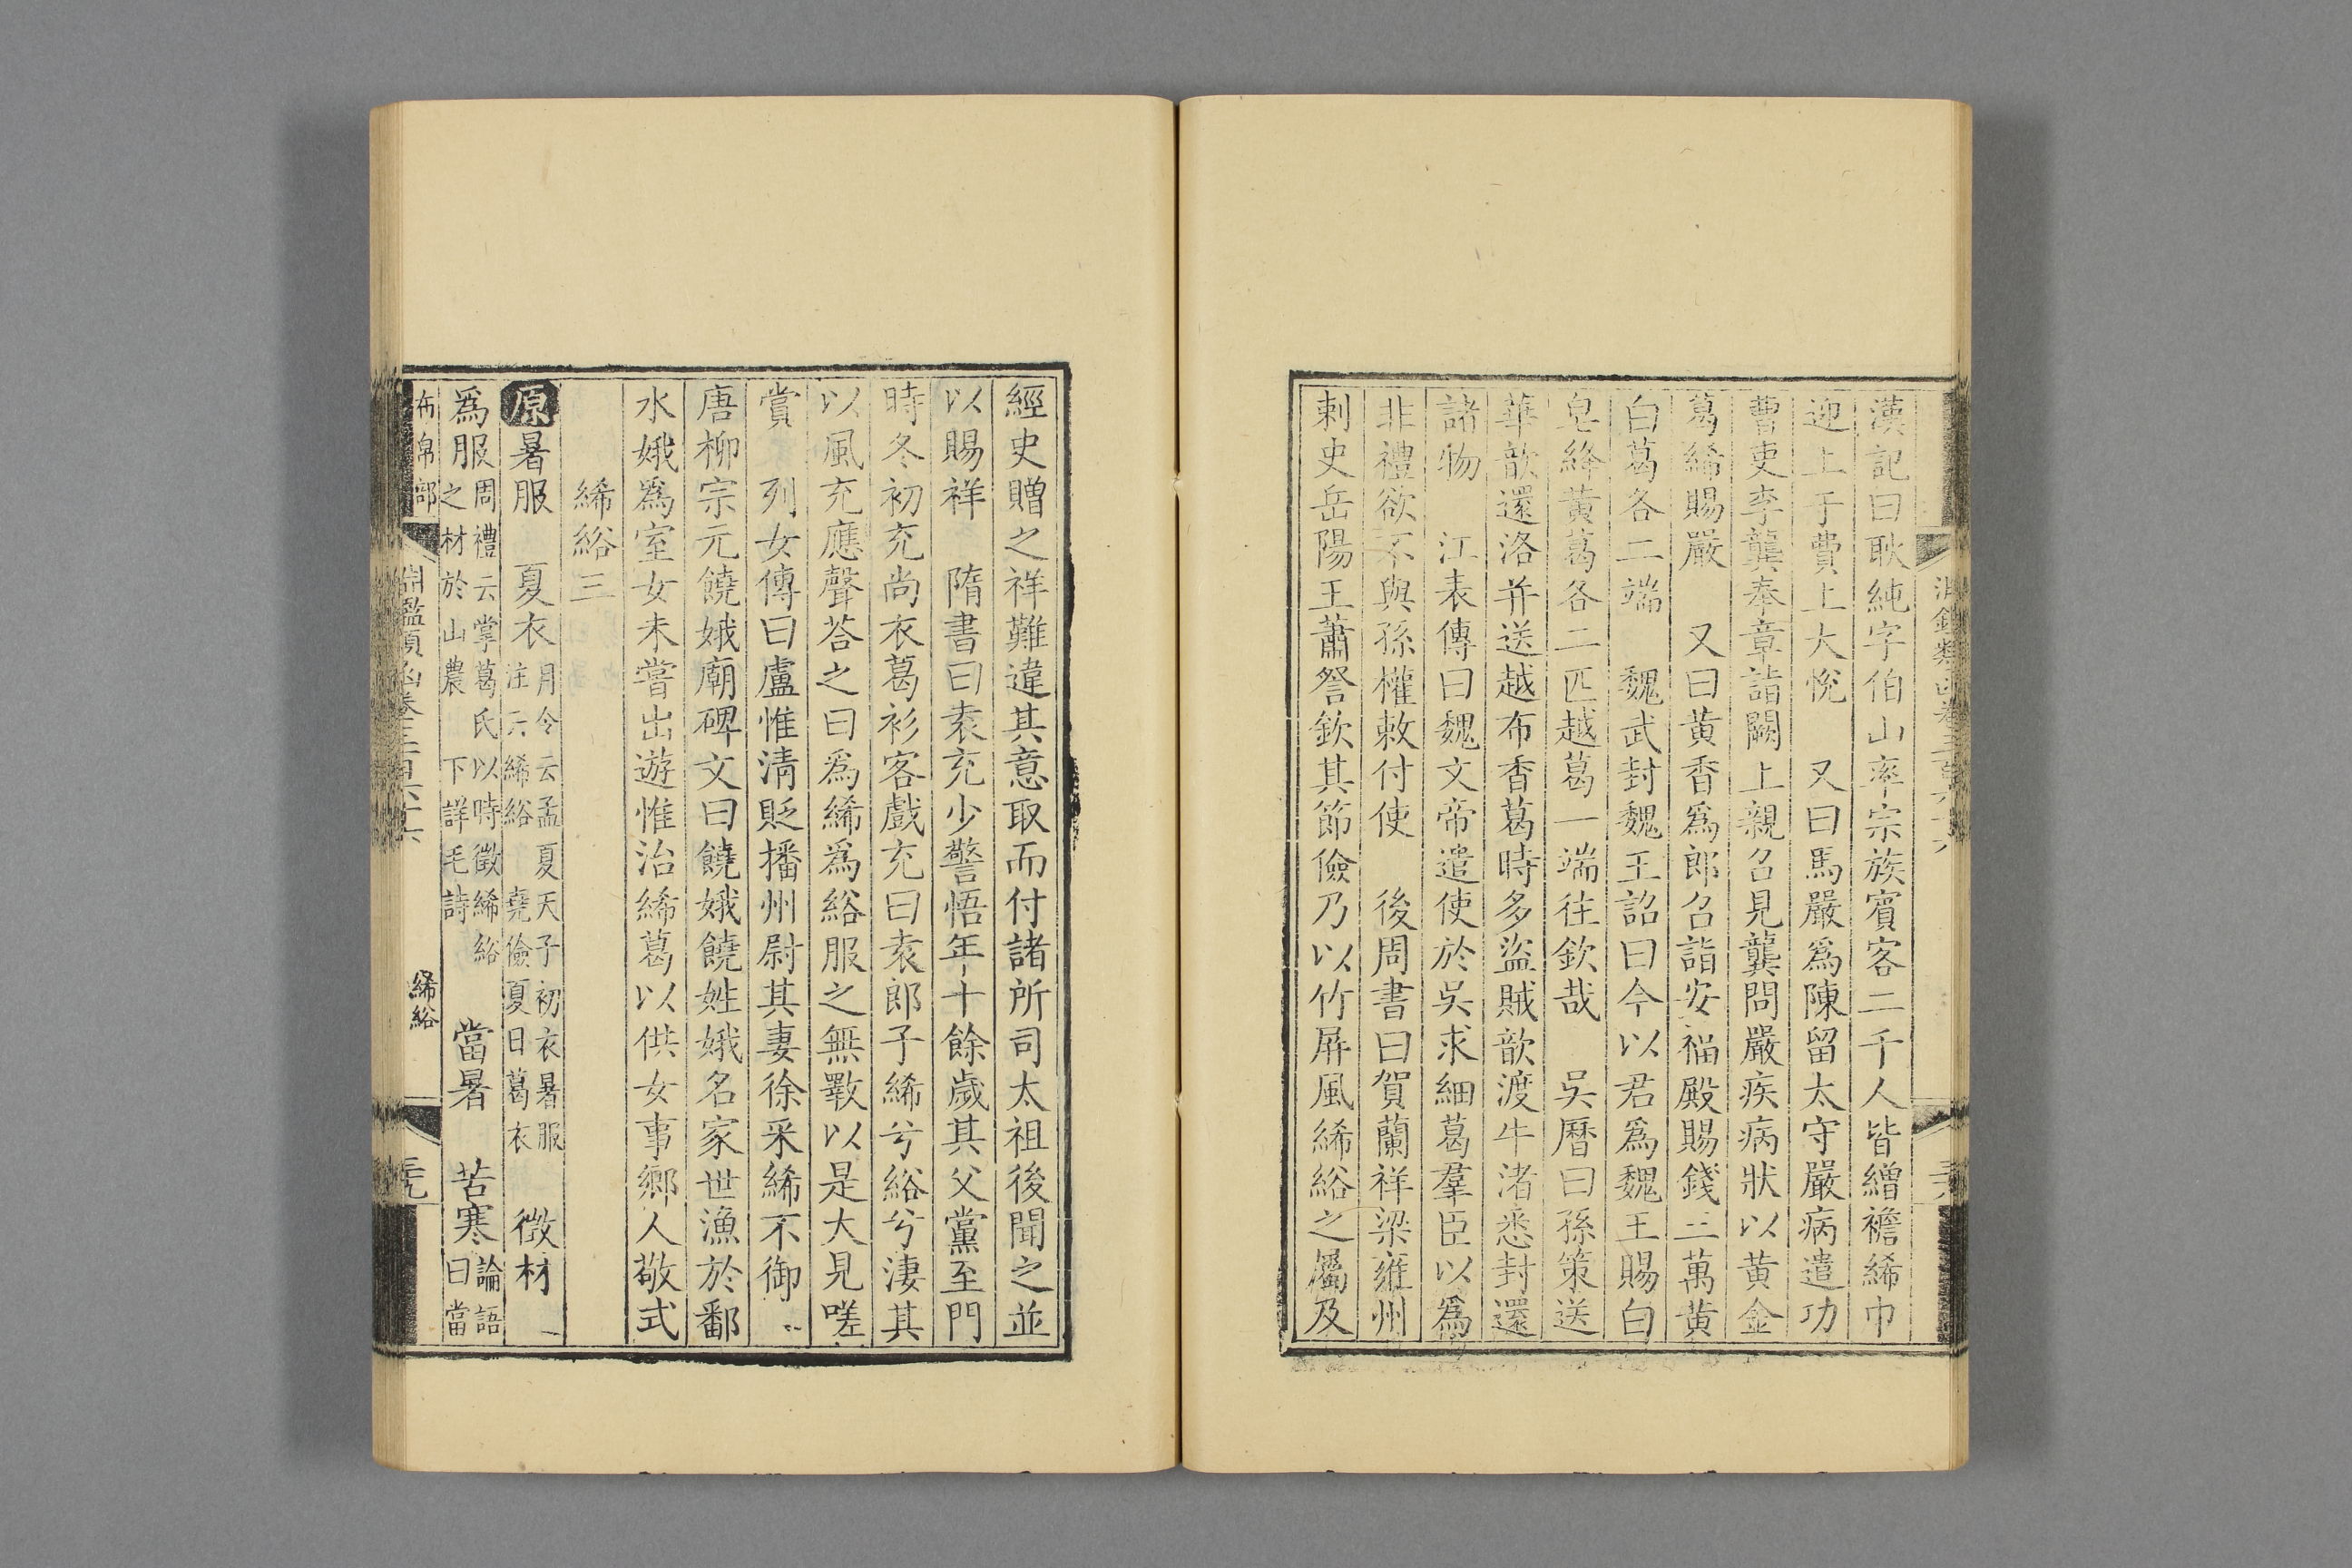 漢記曰耿純字伯山率宗族賓客二千人皆繒襜絺巾
迎上于費上大悅　又曰馬嚴爲陳留太守嚴病遣功
曹吏李龔奉章詣闕上親召見龔問嚴疾病狀以黃金
葛絺賜嚴　又曰黃香爲郎召詣安福殿賜錢三萬黃
白葛各二端　魏武封魏王詔曰今以君爲魏王賜白
皂絳黃葛各二匹越葛一端往欽哉　吳曆曰孫策送
華歆還洛并送越布香葛時多盜賊歆渡牛渚悉封還
諸物　江表傳曰魏文帝遣使於吳求細葛羣臣以爲
非禮欲不與孫權敕付使　後周書曰賀蘭祥梁雍州
刺史岳陽王蕭詧欽其節儉乃以竹屏風絺綌之屬及
經史贈之祥難違其意取而付諸所司太祖後聞之並
以賜祥　隋書曰袁充少警悟年十餘歲其父黨至門
時冬初充尚衣葛衫客戲充曰袁郎子絺兮綌兮淒其
以風充應聲荅之曰爲絺爲綌服之無斁以是大見嗟
賞　列女傳曰盧惟清貶播州尉其妻徐采絺不御
唐柳宗元饒娥廟碑文曰饒娥饒姓娥名家世漁於鄱
水娥爲室女未嘗出遊惟治絺葛以供女事鄉人敬式
絺綌三
原暑服　夏衣月令云孟夏天子初衣暑服注云絺綌　堯儉夏日葛衣　徵材
爲服周禮云掌葛氏以時徵絺綌之材於山農　下詳毛詩　當暑　苦寒論語曰當
布帛部　淵鑑類函卷三百六十六　絺綌　三九